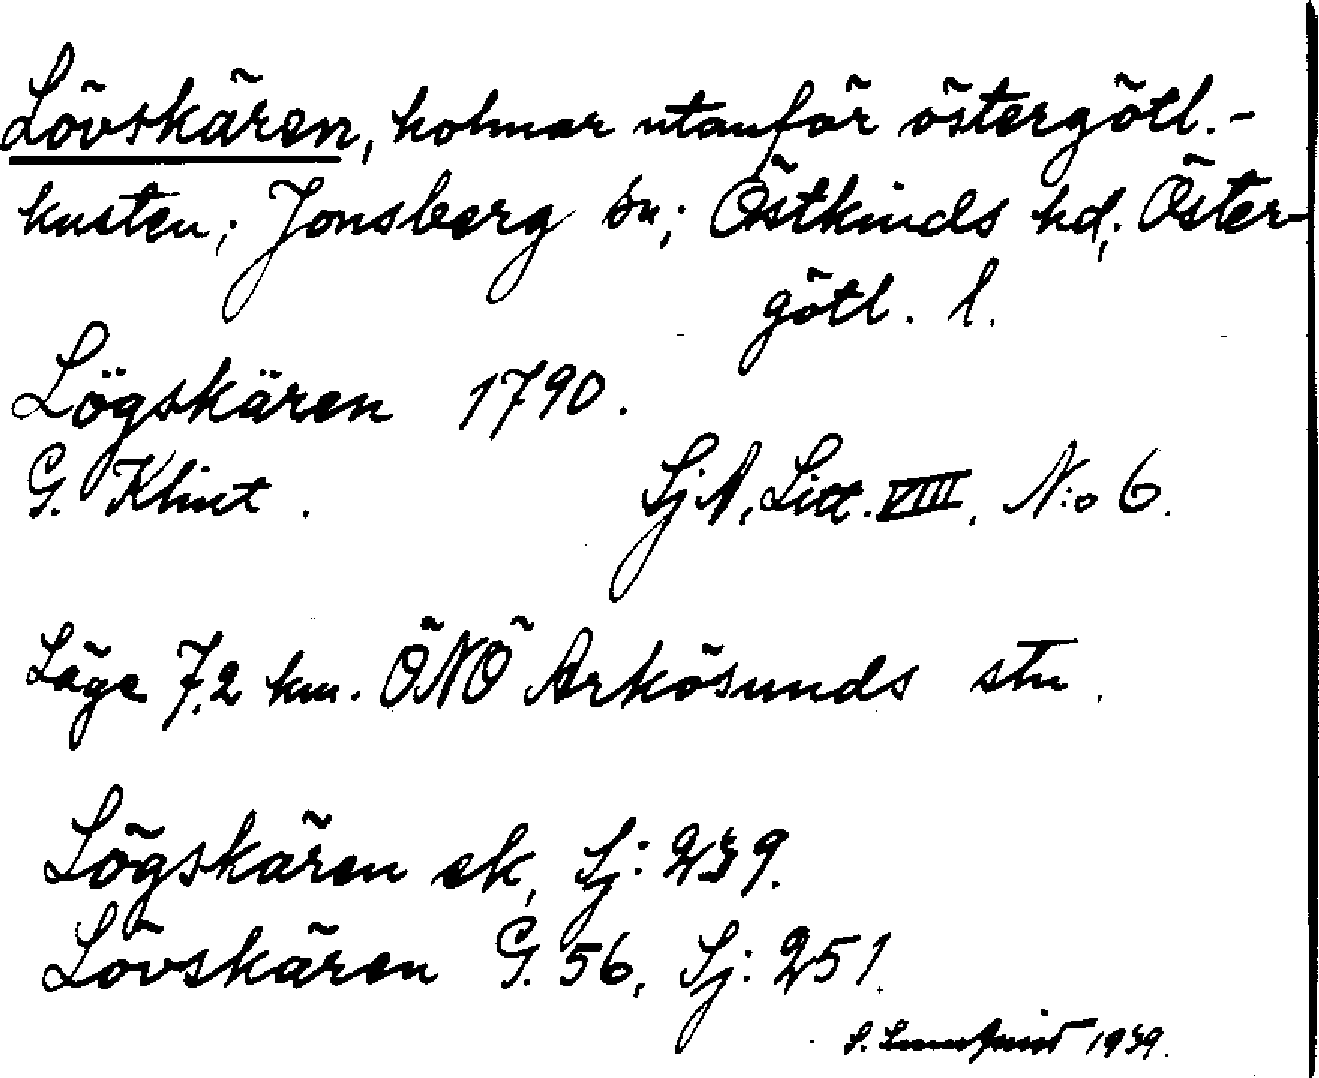 Lövskären, holmar utanför östergötl.-
kusten; Jonsberg sn; Östkinds hd; Öster-
götl. l.
Lögskären 1790.
G. Klint. SjA, Litt. VIII, N:o 6.
Läge 7,2 km. ÖNÖ Arkösunds stn.
Lögskären ek, Sj: 239.
Lövskären G. 56, Sj: 251.
1939.